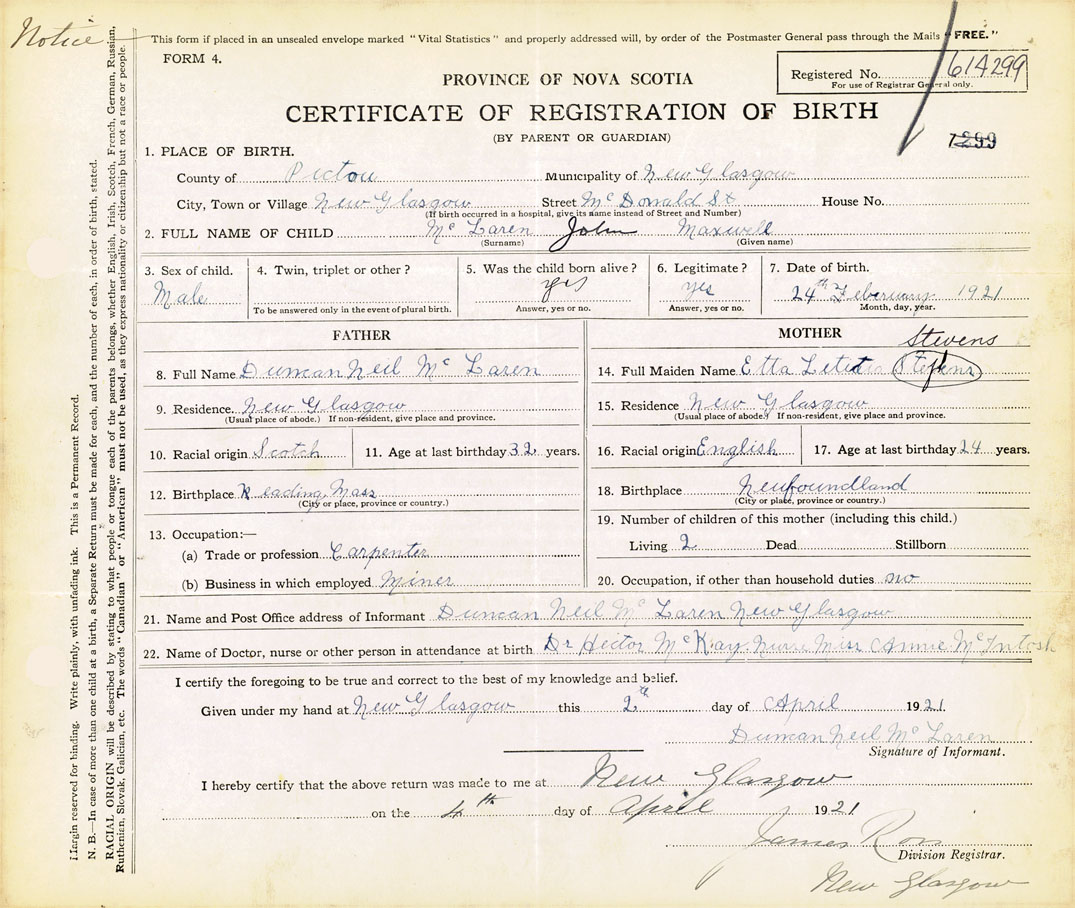 Notice
This form if placed in an unsealed envelope marked "Vital Statistics" and properly addressed will, by order of the Postmaster General pass through the Mails "FREE."
FORM 4.
Registered No. 614299
For use of Registrar General only.
PROVINCE OF NOVA SCOTIA
CERTIFICATE OF REGISTRATION OF BIRTH
(BY PARENT OR GUARDIAN)
7299
1. PLACE OF BIRTH.
County of Pictou Municipality of New Glasgow
City, Town or Village New Glasgow Street McDonald St House No.
(If birth occurred in a hospital, give its name instead of Street and Number)
2. FULL NAME OF CHILD McLaren John Maxwell
(Surname) (Given name)
3. Sex of child. 4. Twin, triplet or other? 5. Was the child born alive? 6. Legitimate? 7. Date of birth.
Male yes yes 24th Feberuary 1921
To be answered only in the event of plural birth. Answer, yes or no. Answer, yes or no. Month, day, year.
FATHER
8. Full Name Duncan Neil McLaren
9. Residence. New Glasgow
(Usual place of abode.) If non-resident, give place and province.
10. Racial origin Scotch 11. Age at last birthday 32 years.
12. Birthplace Reading Mass
(City or place, province or country.)
13. Occupation:—
(a) Trade or profession Carpenter
(b) Business in which employed Miner
MOTHER
Stevens
14. Full Maiden Name Etta Letitia Stefens
15. Residence New Glasgow
(Usual place of abode.) If non-resident, give place and province.
16. Racial origin English 17. Age at last birthday 24 years.
18. Birthplace Neufoundland
(City or place, province or country.)
19. Number of children of this mother (including this child.)
Living 2 Dead Stillborn
20. Occupation, if other than household duties no
21. Name and Post Office address of Informant Duncan Neil McLaren New Glasgow
22. Name of Doctor, nurse or other person in attendance at birth Dr Hector McKay Nurse Miss Annie McIntosh
I certify the foregoing to be true and correct to the best of my knowledge and belief.
Given under my hand at New Glasgow this 2th day of April 1921
Duncan Neil McLaren
Signature of Informant.
I hereby certify that the above return was made to me at New Glasgow
on the 4th day of April 1921
James Ross
Division Registrar.
New Glasgow
Margin reserved for binding. Write plainly, with unfading ink. This is a Permanent Record.
N. B.—In case of more than one child at a birth, a Separate Return must be made for each, and the number of each, in order of birth, stated.
RACIAL ORIGIN will be described by stating to what people or tongue each of the parents belongs, whether English, Irish, Scotch, French, German, Russian,
Ruthenian, Slovak, Galician, etc. The words "Canadian" or "American" must not be used, as they express nationality or citizenship but not a race or people.